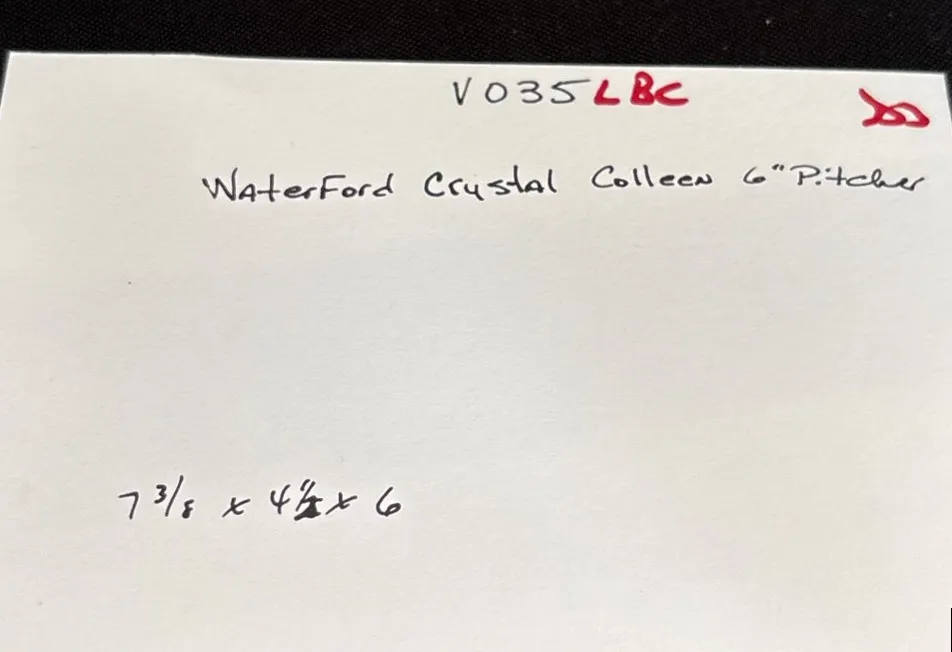 V035 LBC
WaterFord Crystal Colleen 6" Pitcher
7 3/8 x 4 1/2 x 6